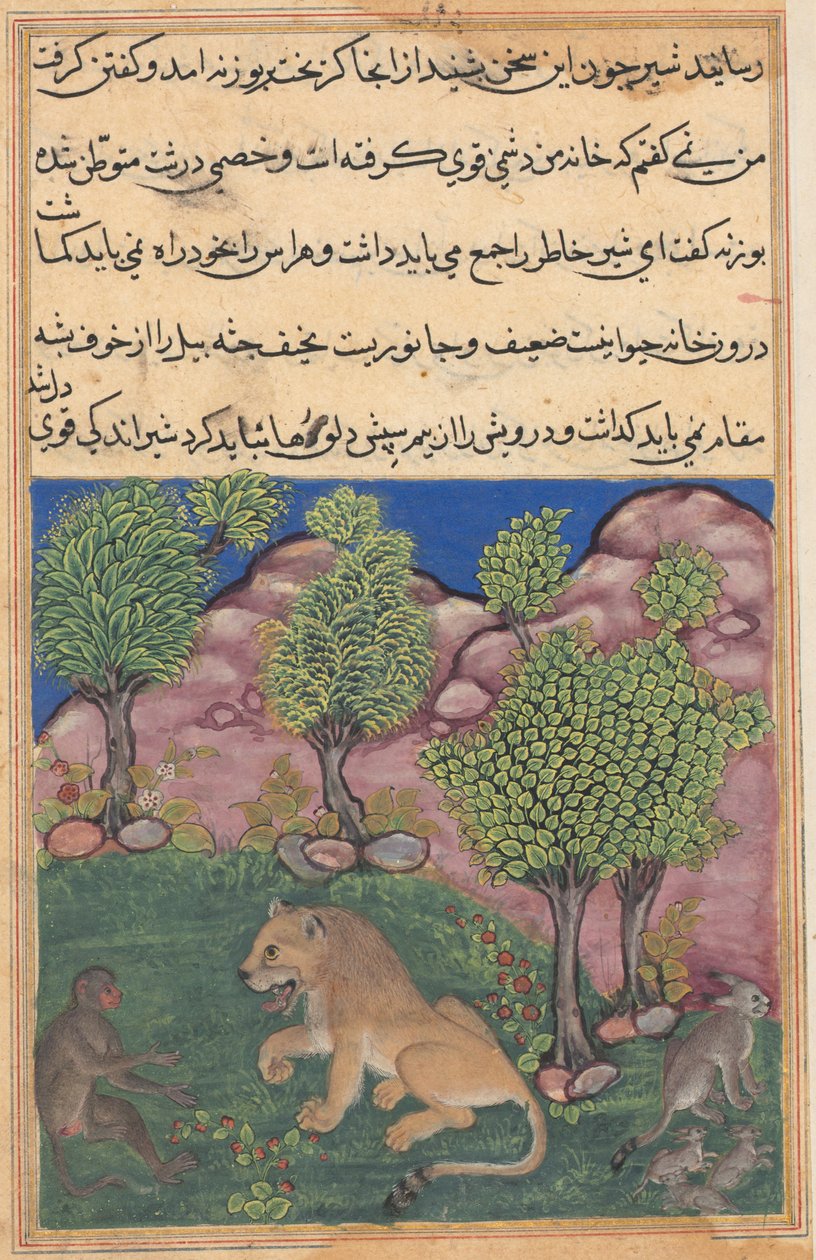 رسانید شیر جون این سخن بشنید از انجا کریخت بر بوزنه امد و کفتن کرفت
من نمی کفتم که خانه من دشمنی قوی کرفته است و خصمی درشت متوطّن شده
بوزنه کفت ای شیر خاطر را جمع می باید داشت و هراس را بخود راه نمی باید کماشت
درون خانه حیوانیست ضعیف و جانوریست نحیف جثه پیل را از خوف پشه
مقام نمی باید کذاشت و درویش را از بیم سپش دلق رها نباید کرد شیر اندکی قوی دل شد